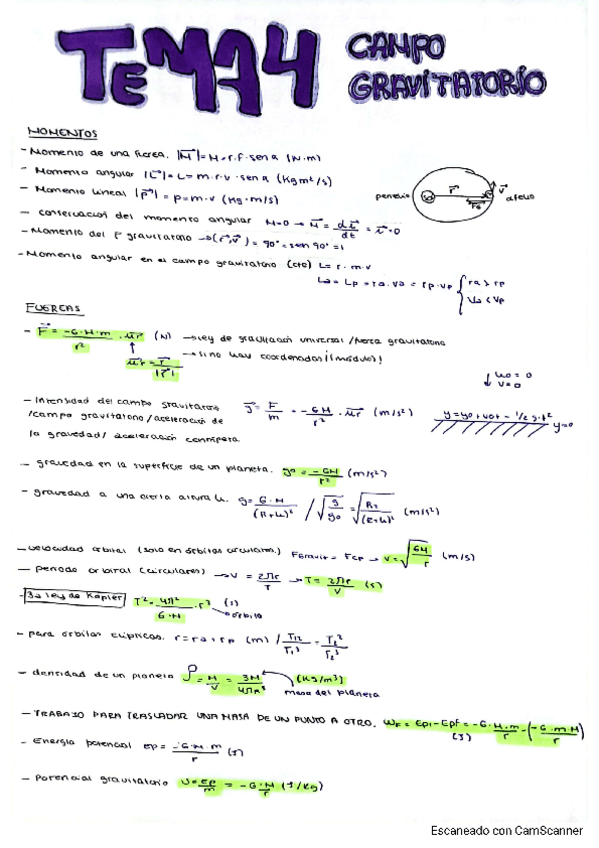 TEMA4 CAMPO
GRAVITATORIO
MOMENTOS
- Momento de una fuerza. |M| = M = r·F·sen α (N·m)
- Momento angular |L| = L = m·r·v·sen α (Kg m²/s)
- Momento lineal |P| = p = m·v (Kg·m/s)
perihelio r v afelio
FG
- conservación del momento angular M=0 → M = dL/dt = L=0
- Momento del F gravitatorio → (r,v) = 90° = sen 90° = 1
- Momento angular en el campo gravitatorio (cte) L = r·m·v
La = Lp = ra·va = rp·vp { ra > rp
va < vp
FUERZAS
- F = -G·M·m/r² · ur (N) → Ley de gravitación universal / fuerza gravitatoria
→ si no hay coordenadas i (módulo)!
ur = r/|r|
v0 = 0
v=0
- Intensidad del campo gravitatorio g = F/m = -GM/r² · ur (m/s²)
/campo gravitatorio /aceleración de
la gravedad/ aceleración centrípeta.
y = y0 + v0t - 1/2 g·t²
y=0
- gravedad en la superficie de un planeta. g0 = -GM/r² (m/s²)
- gravedad a una cierta altura h. g = G·M/(R+h)² / √g/g0 = √RT/(R+h)² (m/s²)
- velocidad orbital (solo en órbitas circulares.) FGravit = Fcp → v = √GM/r (m/s)
- periodo orbital (circulares) → v = 2πr/T → T = 2πr/v (s)
- 3a ley de Kepler T² = 4π²/G·M · r³ (s)
órbita
- para órbitas elípticas. r = ra + rp (m) / T1²/r1³ = T2²/r2³
- densidad de un planeta ρ = M/V = 3M/4πR³ (Kg/m³)
masa del planeta
- TRABAJO PARA TRASLADAR UNA MASA DE UN PUNTO A OTRO. WF = Epi - Epf = -G·M·m/r - (-G·m·M/r)
(J)
- Energía potencial Ep = -G·M·m/r (J)
- Potencial gravitatorio V = Ep/m = -G·M/r (J/Kg)
Escaneado con CamScanner